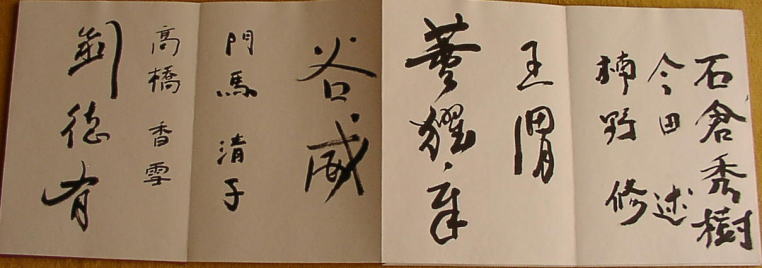 石倉秀樹
今田述
楠野修
王渭
董耀章
谷威
門馬清子
高橋香雪
劉徳有